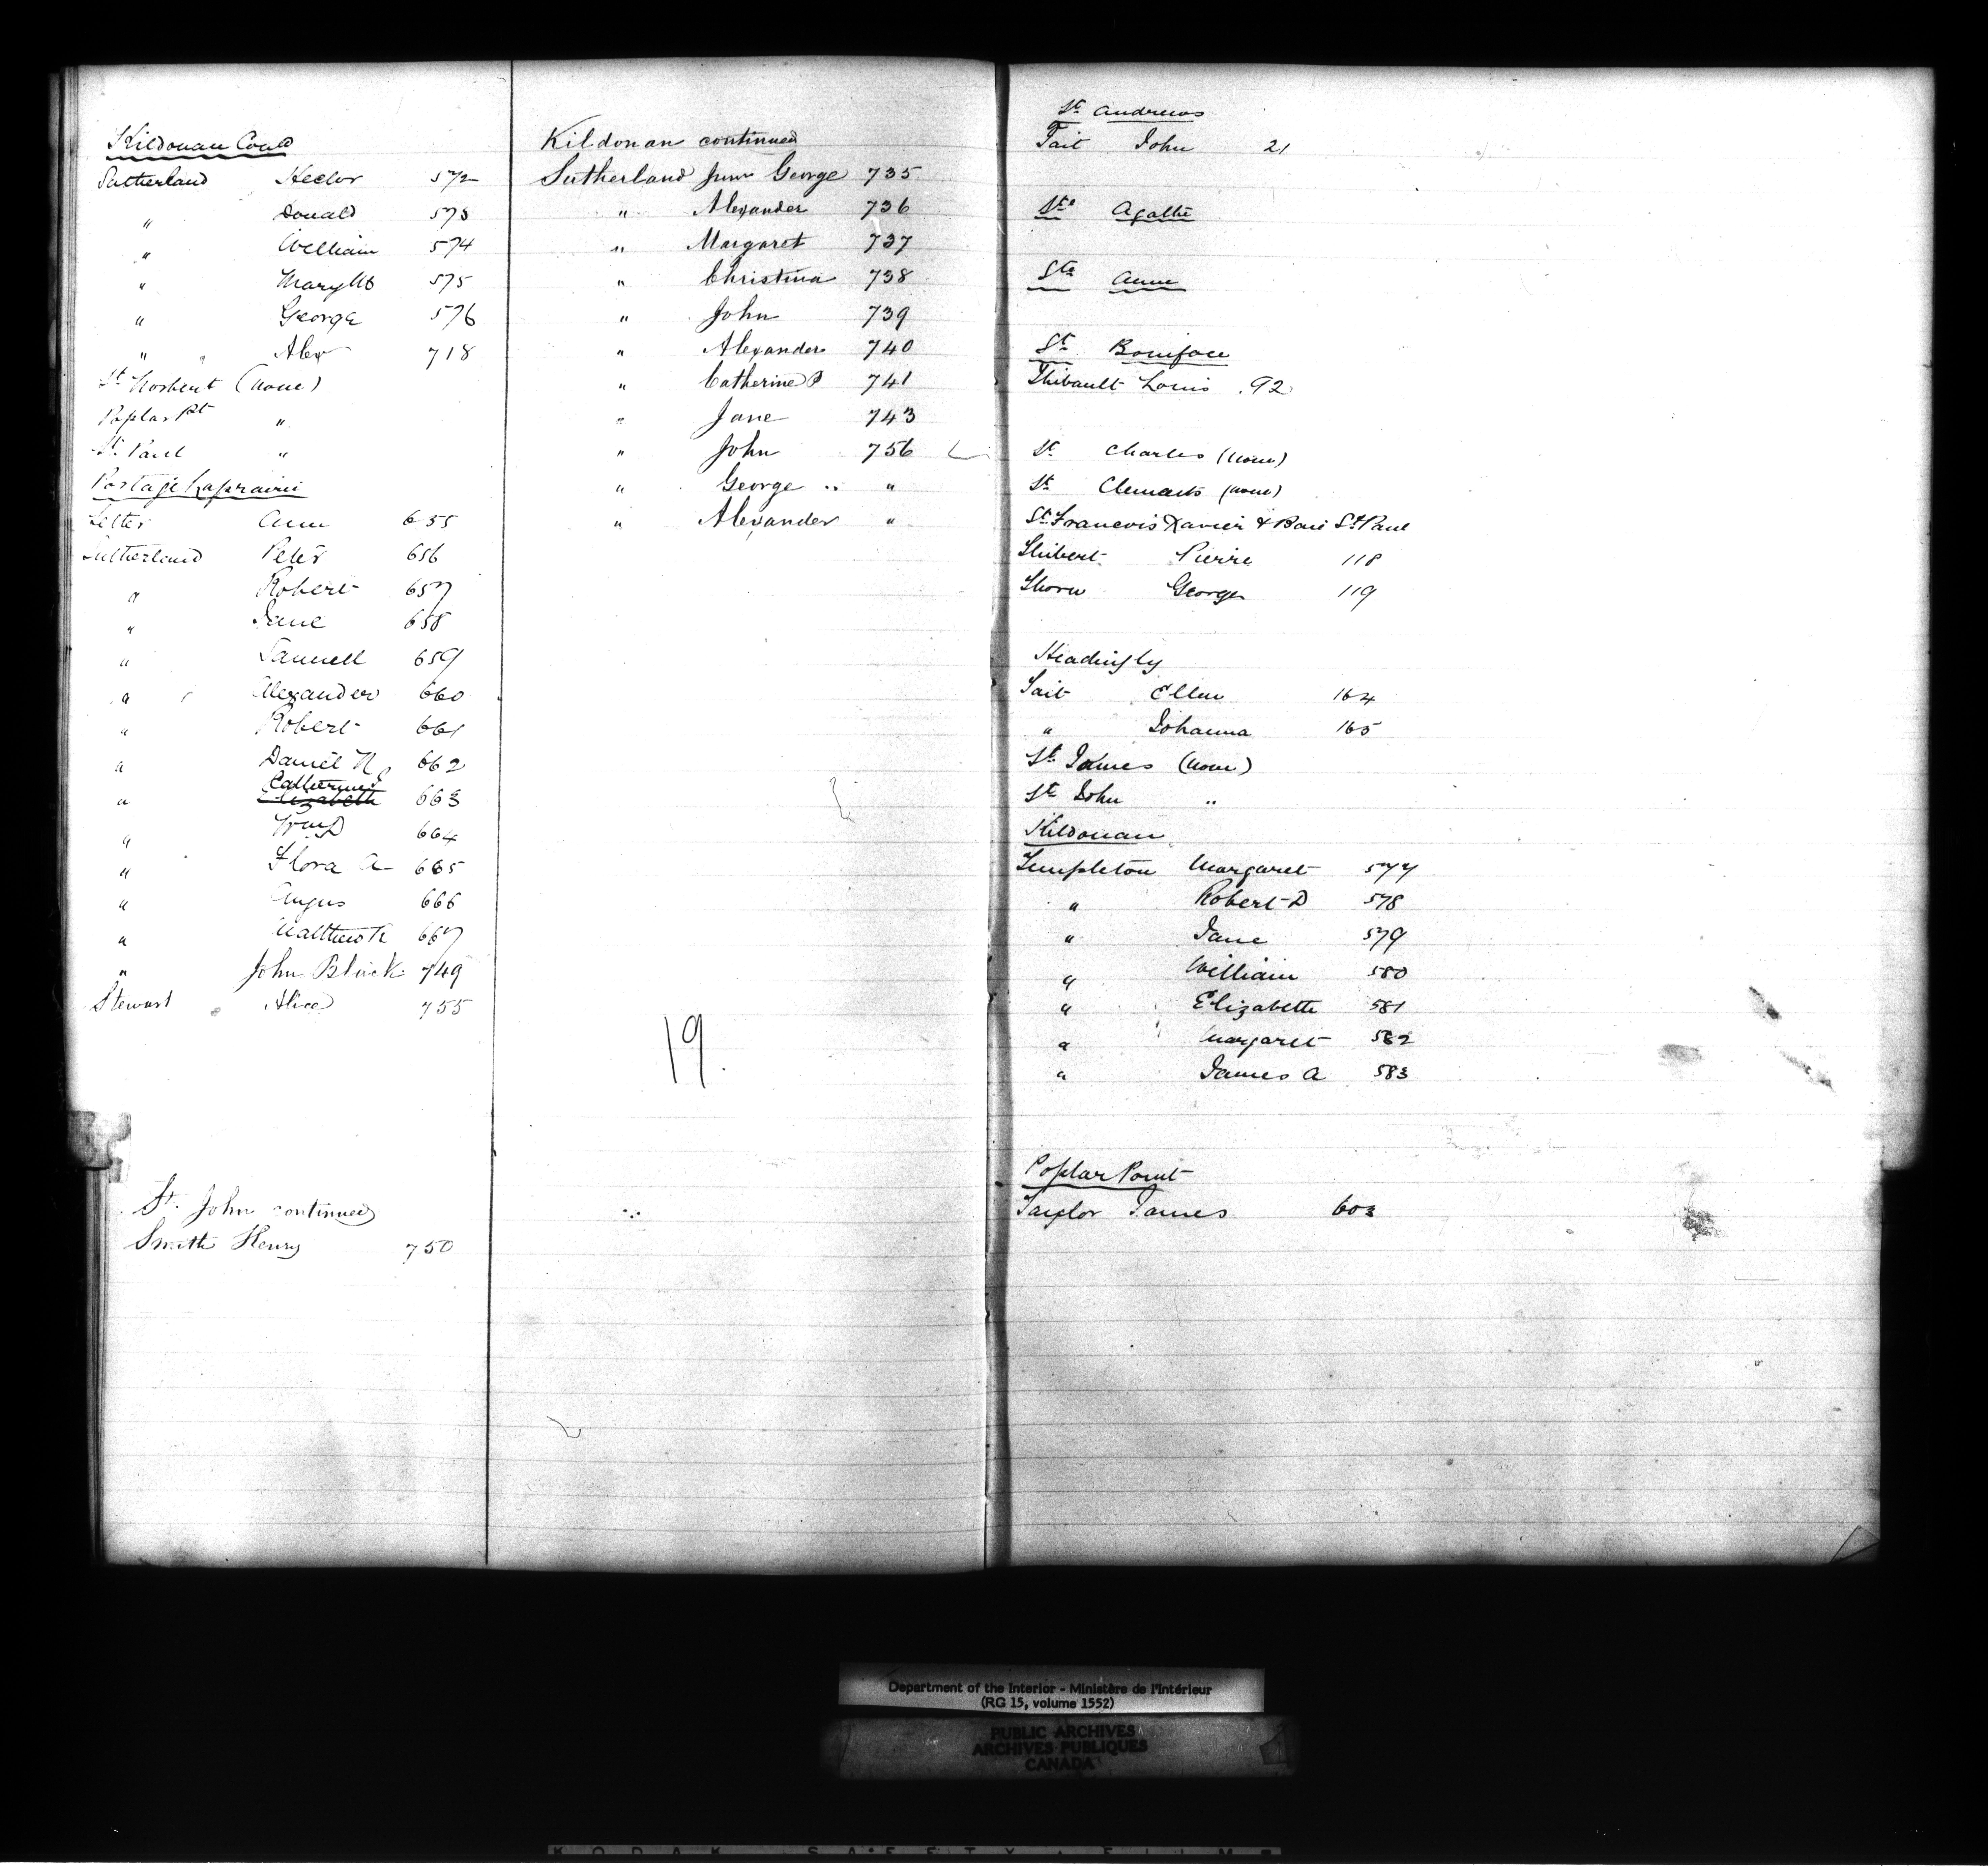 Kildonan Cond
Sutherland Hector 572
" Donald 573
" William 574
" Mary 575
" George 576
" Alex 718
St Norbert (None)
Poplar Pt "
St Paul "
Portage Laprairie
Setter Ann 655
Sutherland Peter 656
" Robert 657
" Jane 658
" Samuell 659
" Alexander 660
" Robert 661
" Daniel N 662
Catherine
" Elizabeth 663
" 664
" Flora A 665
" Angus 666
" Matthew 667
" John Black 749
Stewart Alice 755
St. John continued
Smith Henry 750
Kildonan continued
Sutherland Junr George 735
" Alexander 736
" Margaret 737
" Christina 738
" John 739
" Alexander 740
" Catherine 741
" Jane 743
" John 756
" George " "
" Alexander "
19.
St Andrews
Tait John 21
Ste Agathe
Ste Anne
St Boniface
Thibault Louis 92
St Charles (None)
St Clements (None)
St Francois Xavier & Baie St Paul
Thibert Pierre 118
Thorn George 119
Headingly
Tait Ellen 164
" Johanna 165
St James (None)
St John "
Kildonan
Templeton Margaret 577
" Robert D 578
" Jane 579
" William 580
" Elizabeth 581
" Margaret 582
" James A 583
Poplar Point
Taylor James 603
Department of the Interior - Ministère de l'Intérieur
(RG 15, volume 1552)
PUBLIC ARCHIVES
ARCHIVES PUBLIQUES
CANADA
KODAK SAFETY FILM